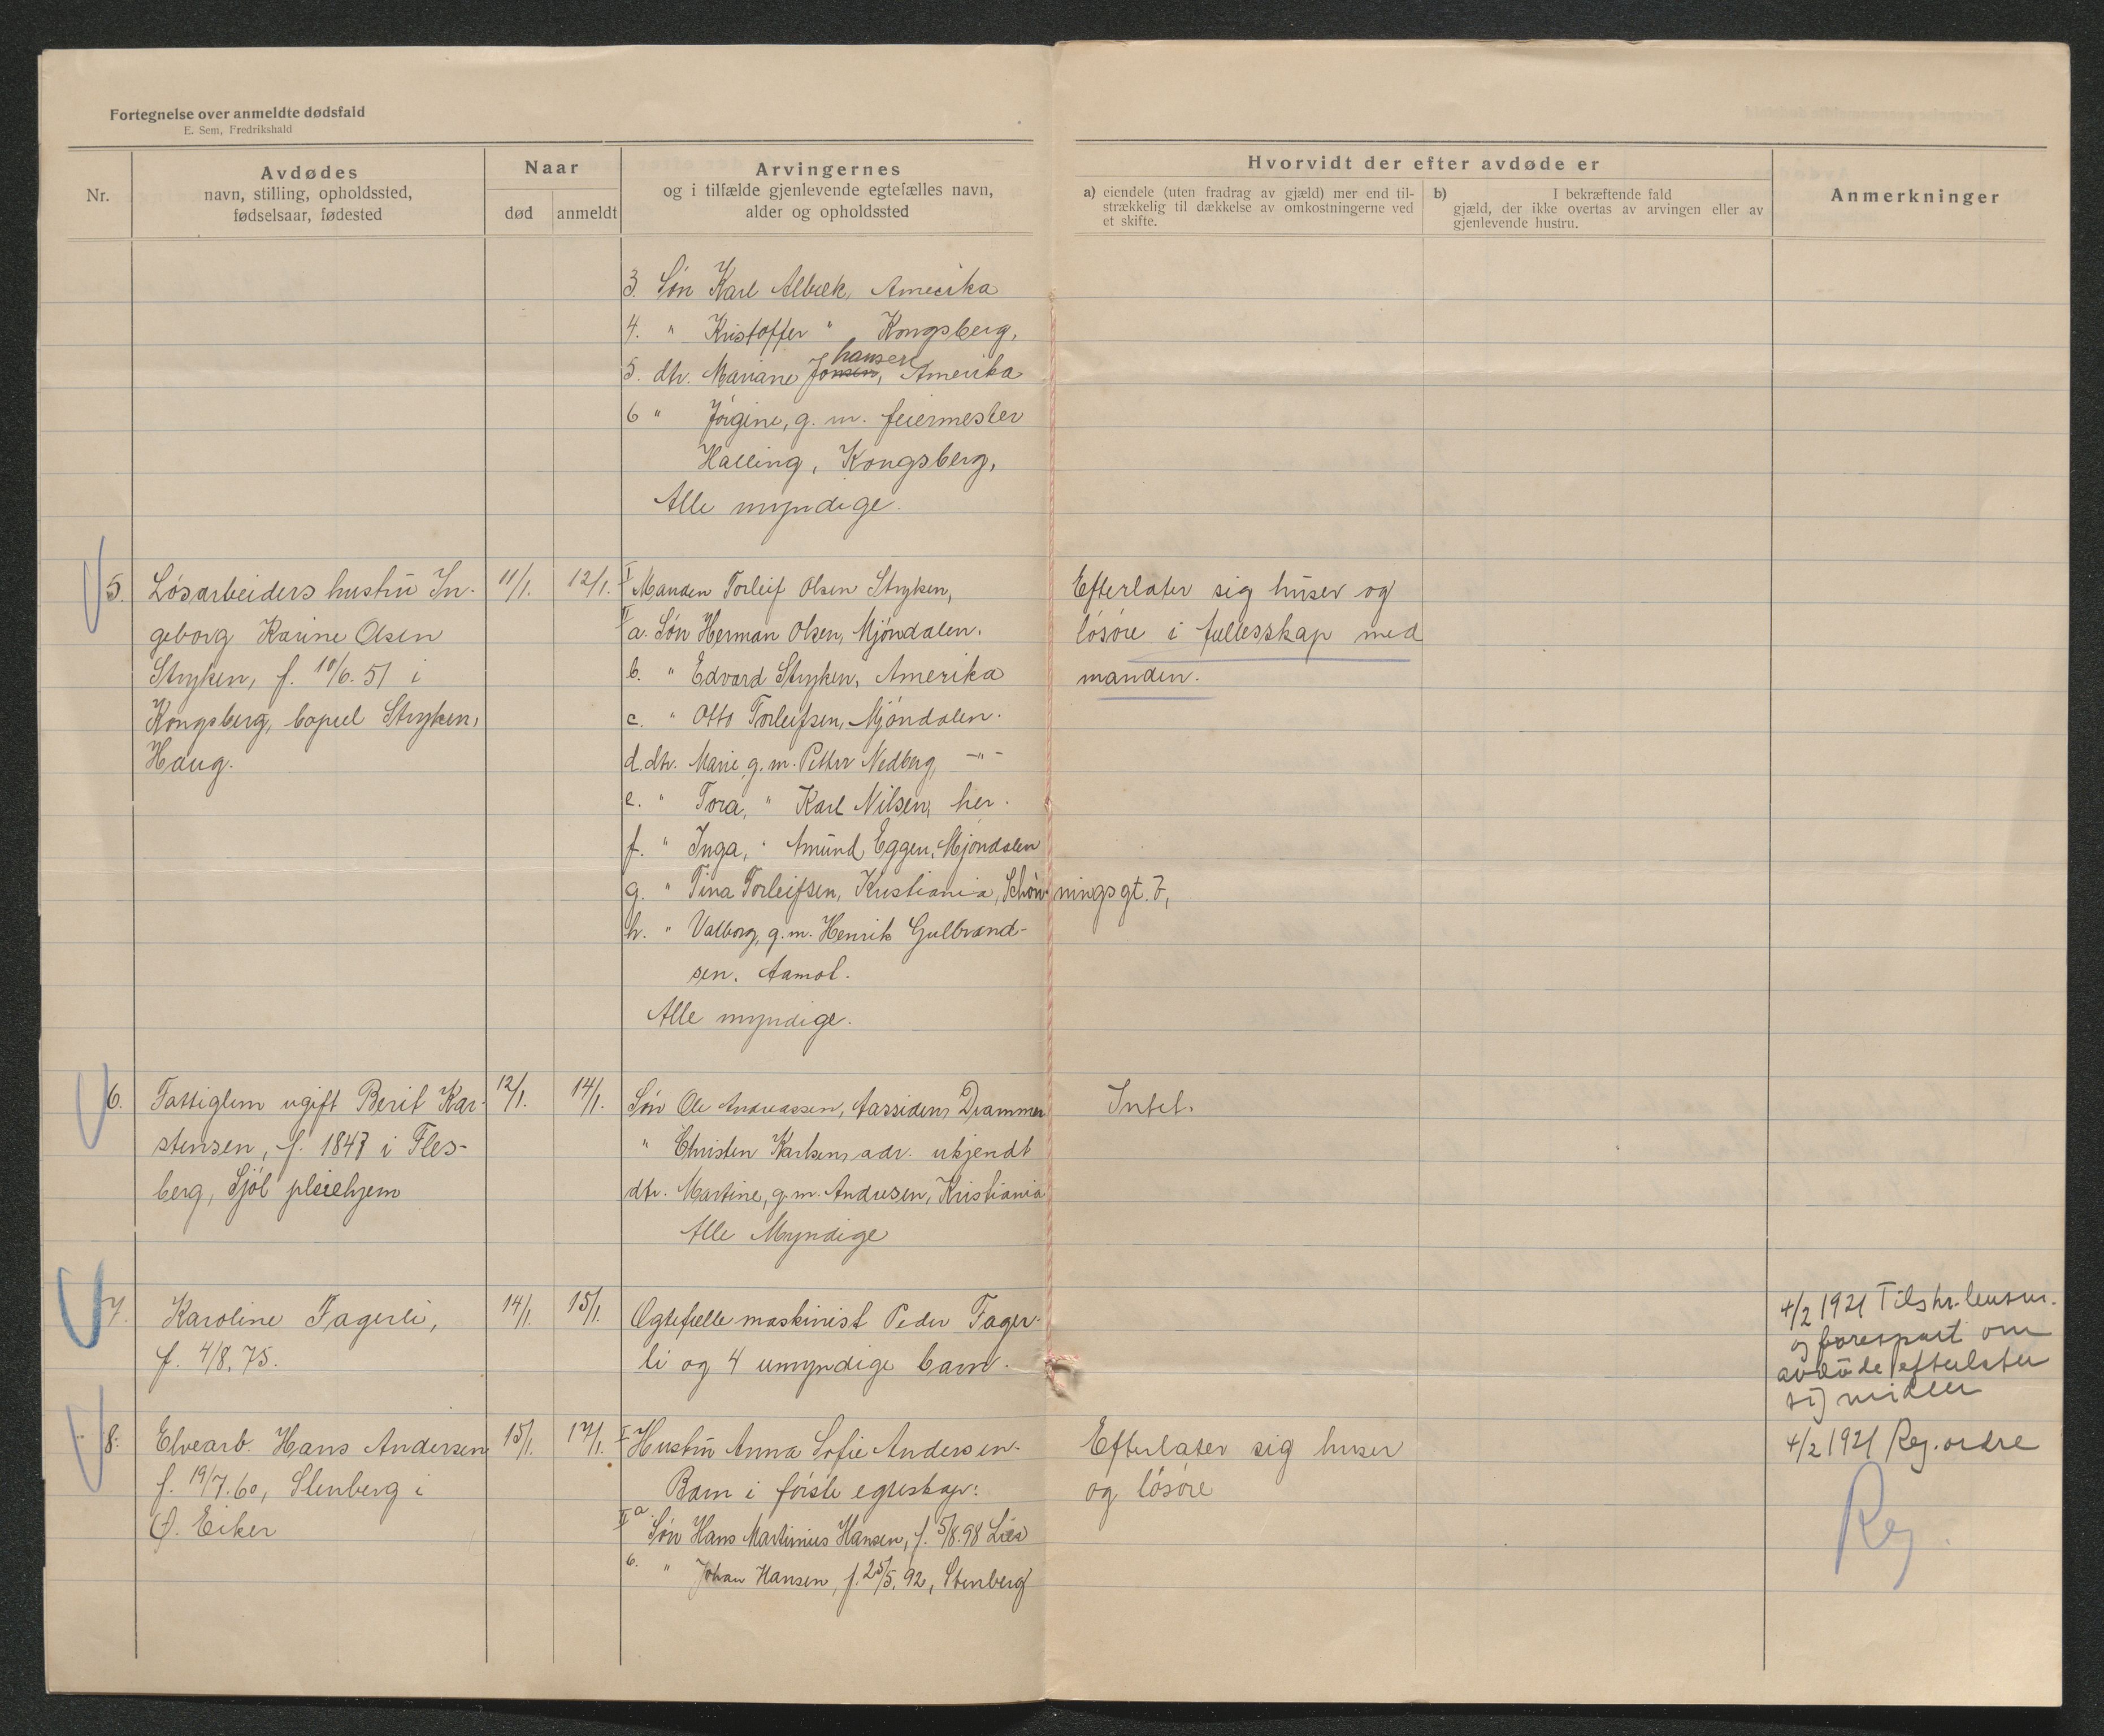 Fortegnelse over anmeldte dødsfald
E. Sem, Fredrikshald
Nr.
Avdødes
navn, stilling, opholdssted,
fødselsaar, fødested
Naar
død
anmeldt
Arvingernes
og i tilfælde gjenlevende egtefælles navn,
alder og opholdssted
Hvorvidt der efter avdøde er
a) eiendele (uten fradrag av gjæld) mer end til-
strækkelig til dækkelse av omkostningerne ved
et skifte.
b) I bekræftende fald
gjæld, der ikke overtas av arvingen eller av
gjenlevende hustru.
Anmerkninger
3. Søn Karl Albæk, Amerika
4. " Kristoffer " Kongsberg,
hansen
5. dtr. Mariane Jonsen, Amerika
6 " Jørgine, g. m. feiermester
Halling, Kongsberg,
Alle myndige.
5. Løsarbeiders hustru In-
geborg Karine Olsen
Stryken, f. 10/6. 51 i
Kongsberg, bopæl Stryken,
Haug.
11/1.
12/1.
I Manden Torleif Olsen Stryken,
II a. Søn Herman Olsen, Mjøndalen.
b. " Edvard Stryken, Amerika
c. " Otto Torleifsen, Mjøndalen.
d. dtr. Marie, g. m. Petter Nedberg, -"-
e. " Tora, " Karl Nilsen, her.
f. " Inga, " Amund Eggen, Mjøndalen
g. " Tina Torleifsen, Kristiania, Schøn-ningsgt. 7,
h. " Valborg, g. m. Henrik Gulbrand-
sen. Aamot.
Alle myndige.
Efterlater sig huser og
løsøre i fællesskap med
manden.
6. Fattiglem ugift Berit Kar-
stensen, f. 1847 i Fles-
berg, Sjøl pleiehjem
12/1.
14/1.
Søn Ole Andreassen, Aassiden, Drammen
" Christen Karlsen, adr. ukjendt
dtr. Martine, g. m. Andresen, Kristiania
Alle Myndige
Intet.
7. Karoline Fagerli,
f. 4/8. 75.
14/1.
15/1.
Ægtefælle maskinist Peder Fager-
li og 4 umyndige barn.
4/2 1921 Tilskr. lensm.
og forespurt om
avdøde efterlater
sig midler
8. Elvearb. Hans Andersen
f. 19/7. 60, Stenberg i
Ø. Eiker
15/1.
17/1.
I Hustru Anna Sofie Andersen.
Barn i første egteskap:
II a. Søn Hans Martinius Hansen, f. 5/8. 98 Lier
b. " Johan Hansen, f. 25/5. 92, Stenberg
Efterlater sig huser
og løsøre
4/2 1921 Reg. ordre
Reg.